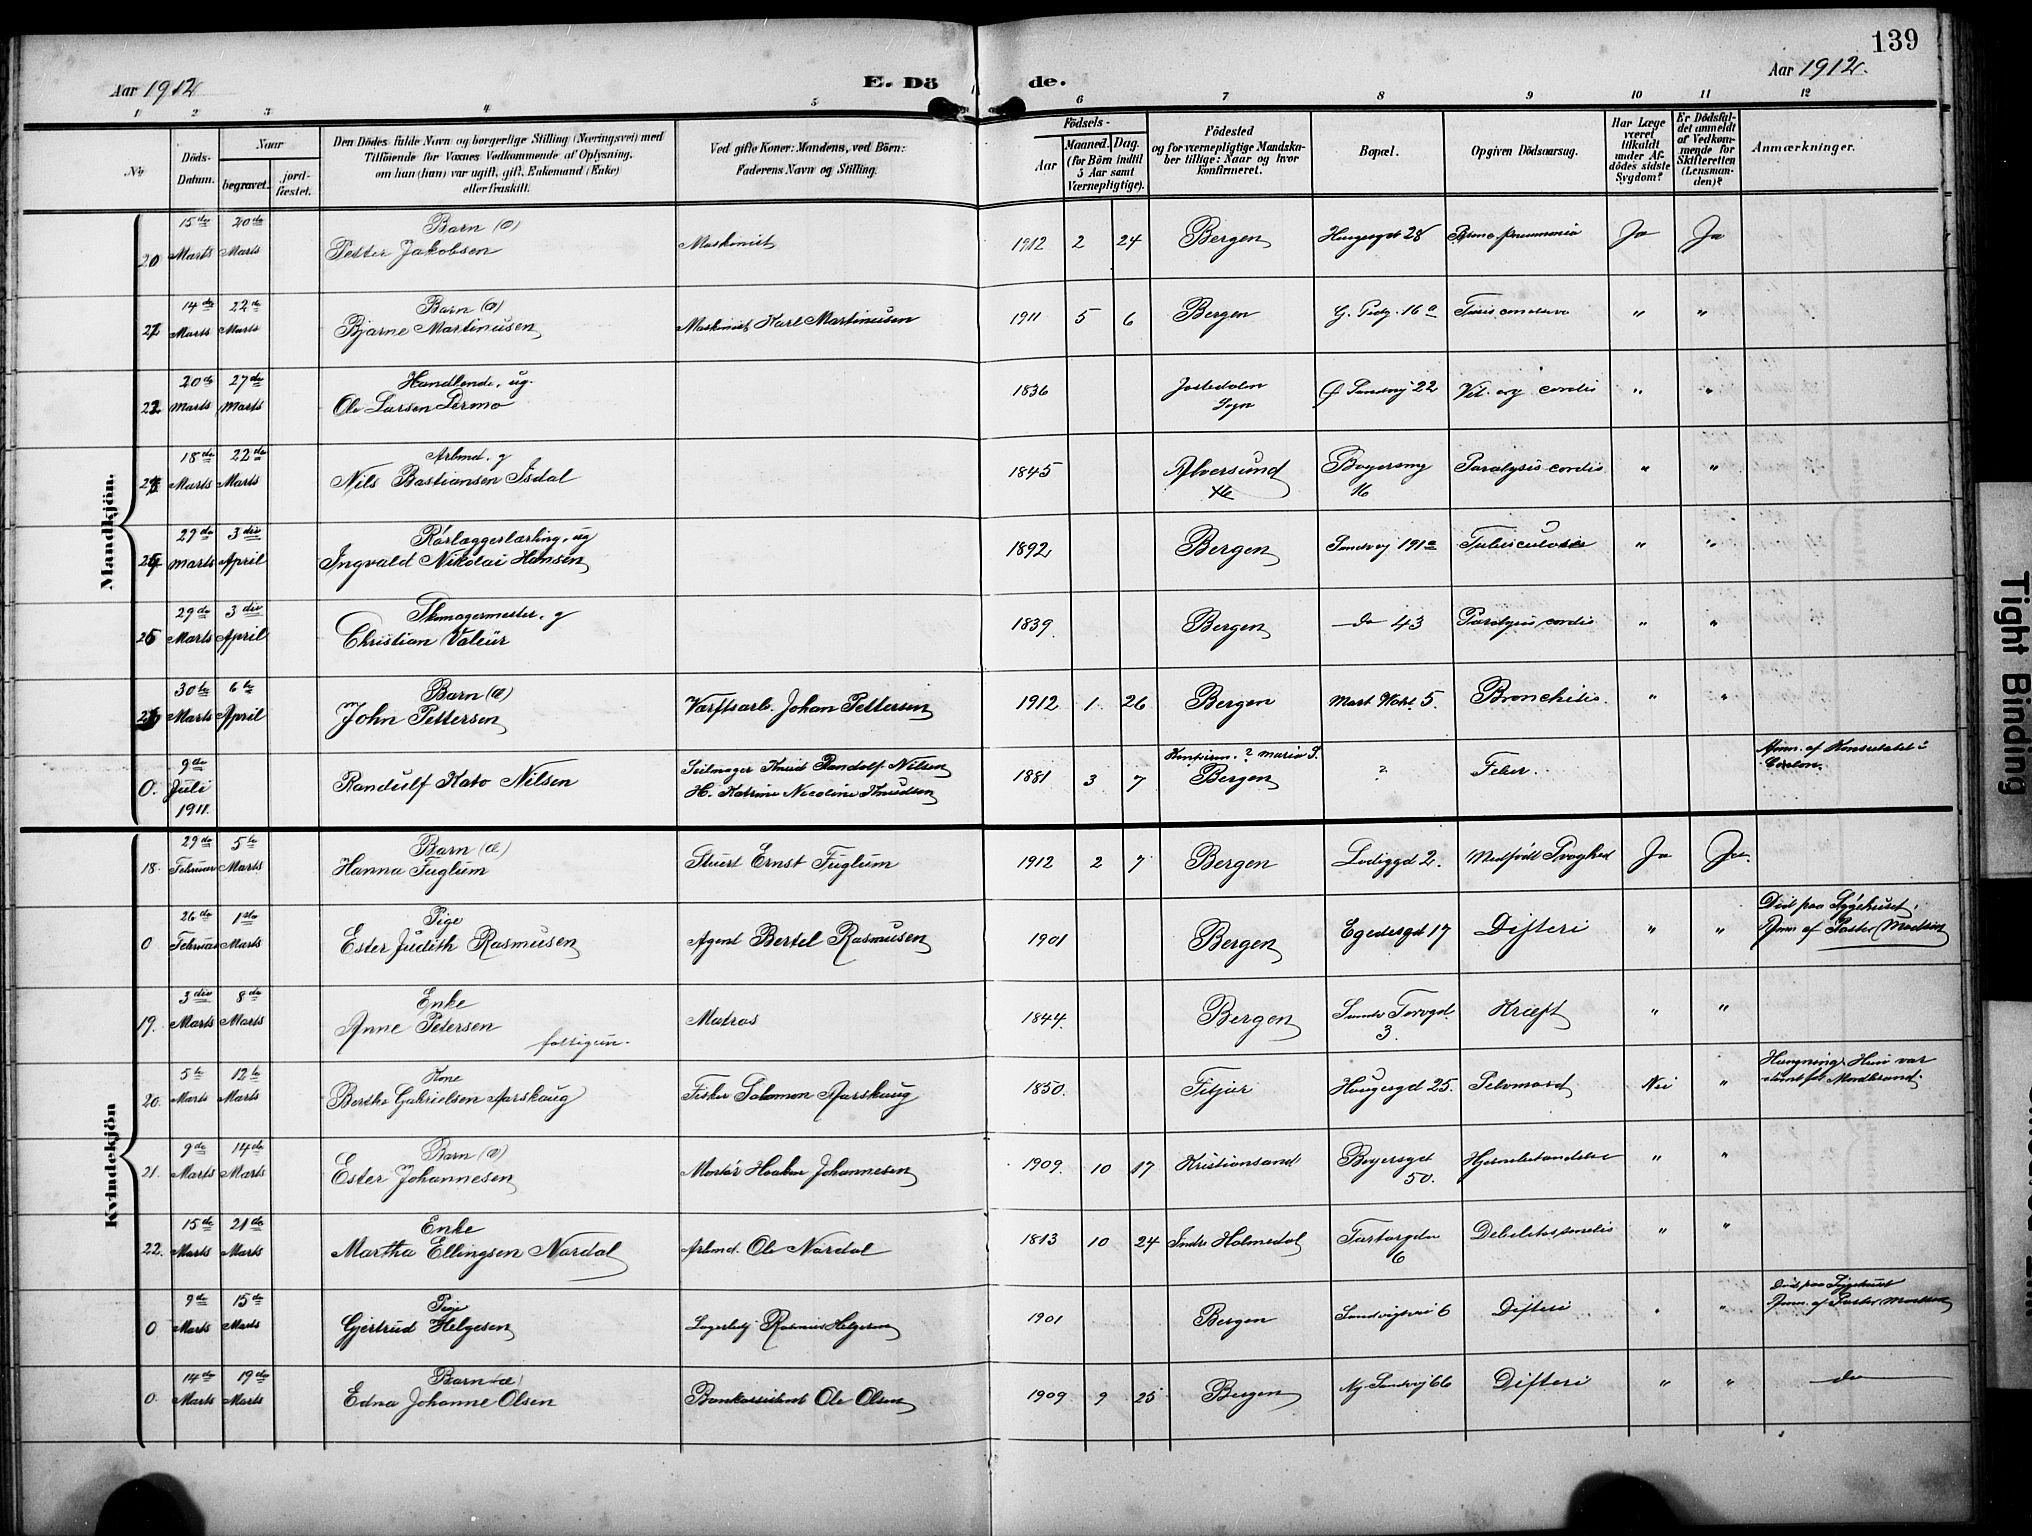 139
Aar 1912
E. Dö
de.
Aar 1912.
1 2 3 4 5 6 7 8 9 10 11 12
No
Döds-Datum.
Naar
begravet.
jord-fæstet.
Den Dödes fulde Navn og borgerlige Stilling (Næringsvei) med
Tilföiende for Voxnes Vedkommende af Oplysning,
om han (hun) var ugift, gift, Enkemand (Enke)
eller fraskilt.
Ved gifte Koner: Mandens, ved Börn:
Faderens Navn og Stilling.
Födsels-
Aar
Maaned. Dag.
(for Börn indtil
5 Aar samt
Værnepligtige).
Födested
og for værnepligtige Mandska-
ber tillige: Naar og hvor
konfirmeret.
Bopæl.
Opgiven Dödsaarsag.
Har Læge
været
tilkaldt
under Af-
dödes sidste
Sygdom?
Er Dödsfal-
det anmeldt
af Vedkom-
mende for
Skifteretten
(Lensman-
den)?
Anmærkninger.
Mandkjön.
15de 20de Barn (æ)
20 Marts Marts Petter Jakobsen Maskinist 1912 2 24 Bergen Haugesgd 28 pneumonia Ja Ja
14de 22de Barn (æ)
Marts Marts Bjarne Martinusen Maskinist Karl Martinusen 1911 5 6 Bergen 16 " "
20de 27de Handlende, ug.
22 Marts Marts Ole Larsen 1836 Jostedalen Sogn Sandvig 22 Vit. org cordis " "
18de 22de Arbmd. g
Marts Marts Nils Bastiansen Isdal 1845 Alversund Bøgersmg 16 Paralysis cordis " "
29de 3die Rørlæggerlærling, ug
Marts April Ingvald Nikolai Hansen 1892 Bergen Sandvg 191a Tuberculosis " "
29de 3die Skomagermester, g
25 Marts April Christian Valeur 1839 Bergen do 43 Paralysis cordis " "
30te 6te Barn (æ)
Marts April John Pettersen Værftsarb. Johan Pettersen 1912 1 26 Bergen 5. Bronchitis. " "
9de Konfirm. ? Maria S.
0. Juli Randulf Kato Nilsen Seilmager Knud Randolf Nilsen 1881 3 7 Bergen ? Feber. Anm. af Konsulatet i
1911. H. Katrine Nicoline Knudsen
Kvindekjön
29de 5te Barn (æ)
18. Februar Marts Hanna Fuglum Stuert Ernst Fuglum 1912 2 7 Bergen Lodiggd 2. Medfødt Svaghed Ja Ja
26de 1ste Pige
0 Februar Marts Ester Judith Rasmusen Agent Bertel Rasmusen 1901 Bergen Egedesgd 17 Difteri " " Død paa Sygehuset,
Anm af Pastor Madsen
3die 8de Enke
19. Marts Marts Anne Petersen Matros 1844 Bergen Søndre 3. Kræft " "
fattigun.
5te 12te Kone
20. Marts Marts Berthe Gabrielsen Aarskaug Fisker Salomon Aarskaug 1850. Fitjar Haugesgd 25. Selvmord Nei " Hængning. Hun var
Marts 9de 14de Barn (æ)
21. Marts Marts Ester Johannesen Montør Haakon Johannesen 1909. 10 17 Kristiansand Bøgersgd 50. " "
15de 21de Enke
22. Marts Marts Martha Ellingsen Nordal Arbmd. Ole Nordal 1813 10 24 Indre Holmedal 6 Debilitas senilis " "
9de 15de Pige
0 Marts Marts Gjertrud Helgesen Rasmus Helgesen 1901 Bergen Sandvigsvei 6 Difteri " " Død paa Sygehuset
Anm. af Pastor Madsen
14de 19de Barn (æ)
0. Marts Marts Edna Johanne Olsen Bankassistent Ole Olsen 1909 9 25 Bergen Ny Sandvg 66 Difteri " " do
Tight Binding